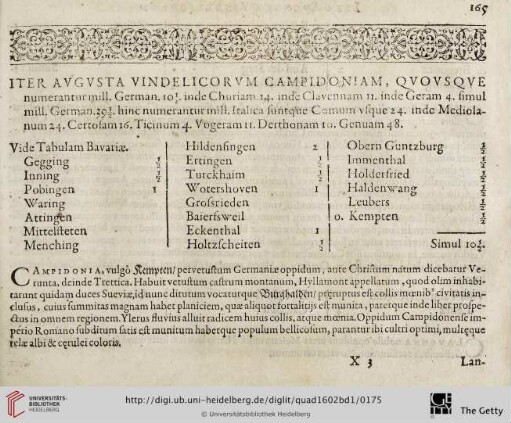 165
ITER AVGVSTA VINDELICORVM CAMPIDONIAM, QVOVSQVE
numerantur mill. German. 10¾. inde Churiam 14. inde Clavennam 11. inde Geram 4. simul
mill. German. 39¾. hinc numerantur mill. Italica suntque Comum vsque 24. inde Mediola-
num 24. Certosam 16. Ticinum 4. Vogeram 11. Derthonam 10. Genuam 48.
Vide Tabulam Bavariæ.
Gegging ½
Inning ½
Pobingen 1
Waring
Attingen
Mittelsteten
Menching
Hildensingen 2
Ertingen ½
Turckhaim ½
Wotershoven 1
Grosrieden
Baiersweil
Eckenthal 1
Holtzscheiten ½
Obern Guntzburg ½
Immenthal ½
Holdersried ½
Haldenwang ½
Leubers ½
o. Kempten ½
Simul 10¾.
CAMPIDONIA, vulgò Kempten/ pervetustum Germaniæ oppidum, ante Christum natum dicebatur Ve-
runta, deinde Trettica. Habuit vetustum castrum montanum, Hyllamont appellatum, quod olim inhabi-
tarunt quidam duces Sueviæ, id nunc dirutum vocaturque Burghalden/ præruptus est collis mœnib9 civitatis in-
clusus, cuius summitas magnam habet planiciem, quæ aliquot fortalitijs est munita, patetque inde liber prospe-
ctus in omnem regionem. Ylerus fluvius alluit radicem huius collis, atque mœnia. Oppidum Campidonense im-
perio Romano subditum satis est munitum habetque populum bellicosum, parantur ibi cultri optimi, multęque
telæ albi & cęrulei coloris.
X 3
Lan-
UNIVERSITÄTS-
BIBLIOTHEK
HEIDELBERG
http://digi.ub.uni-heidelberg.de/diglit/quad1602bd1/0175
© Universitätsbibliothek Heidelberg
The Getty